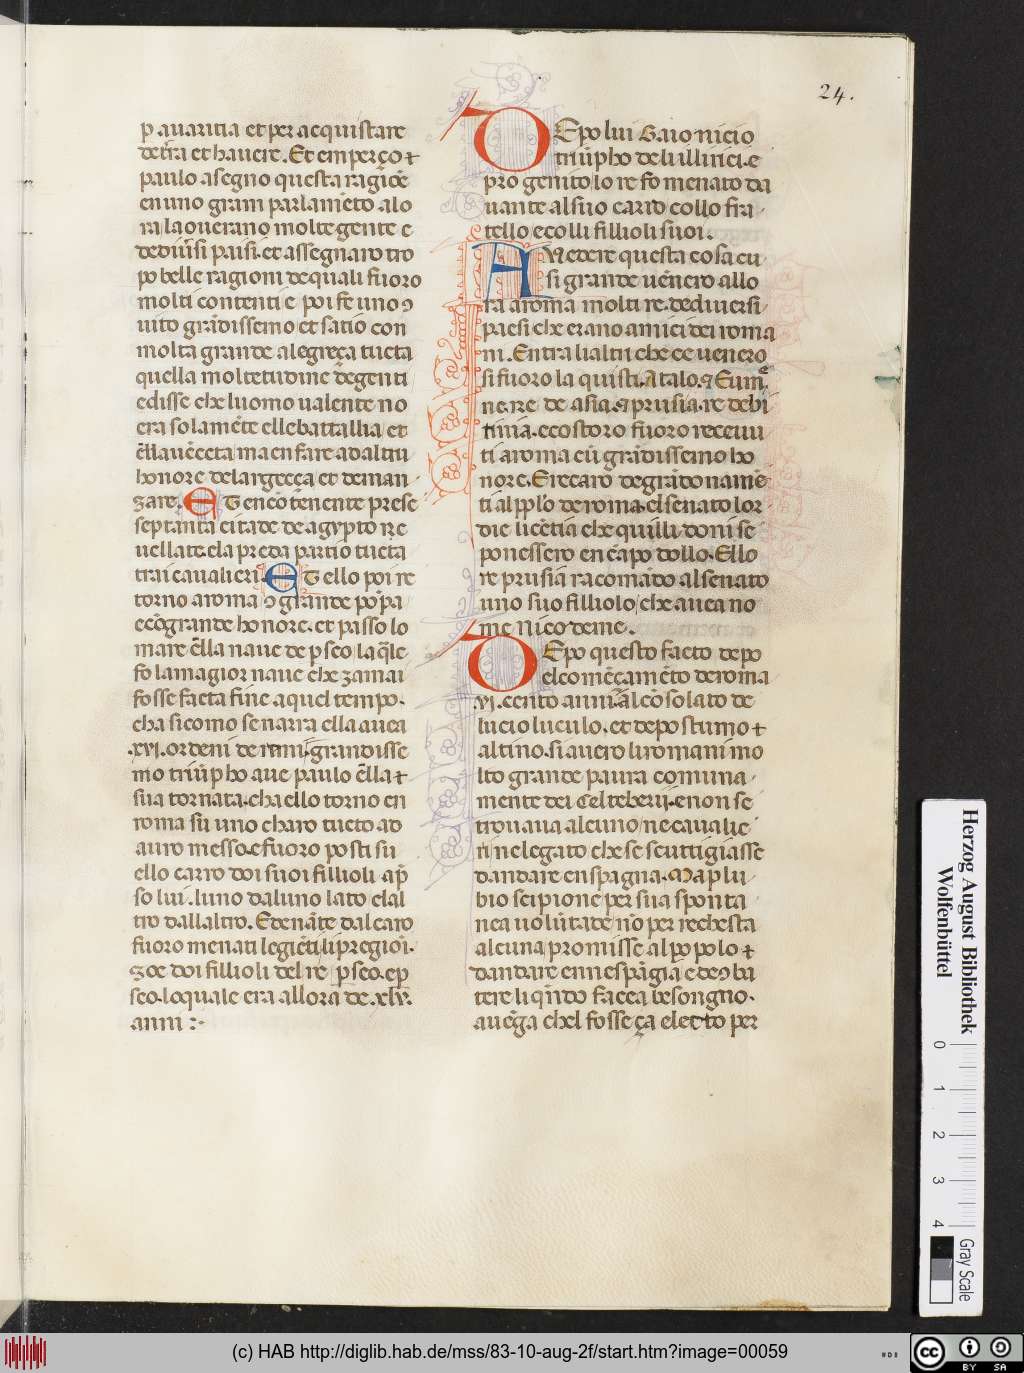 24.
p auaritia et per acquistare
de tr̄ra et hauere. Et em per ço ⁊
paulo asegno questa ragiōe
en uno gram parlamēto alo
ra la ouerano molte gente e
de diūsi paisi. et assegnaro tro
po belle ragioni de quali fuoro
molti contenti e poi fe uno ꝯ
uito grādissemo et fatio con
molta grande alegreça tucta
quella moltetudine de genti
e disse che luomo ualente no
era solamēte elle battallia et
ēlla uēceta ma en fare ad altru
honore de largecça et de man
zare. Et en cō tenente prese
septanta citade de agypto re
uellate. e la preda partio tucta
trai caualieri. Et ello poi re
torno a roma ꝯ grande pōpa
e cō grande honore. et passo lo
mare ēlla naue de pseo la q̄le
fo la magior naue che zamai
fosse facta fine a quel tempo.
cha si como se narra ella auea
.xvi. ordeni de remi. grandisse
mo triūpho aue paulo ēlla ⁊
sua tornata. cha ello torno en
roma sū uno charo tucto ad
auro messo. e fuoro posti su
ello carro doi suoi fillioli ap̄
so lui. luno da luno lato e lal
tro dallaltro. Et enāte dal caro
fuoro menati legiēti. li pregioī.
zoe doi fillioli del re pseo. e p
seo. lo quale era allora de .xlv.
anni :-
Depo lui Gaio nicio
triūpho de li illirici. e
pro genito lo re fo menato da
uante al suo carro collo fra
tello e colli fillioli suoi.
A Vedere questa cosa cu
si grande uēnero allo
ra a roma molti re. de diuersi
paesi che erano amici dei roma
ni. Entra li altri che ce uenero
si fuoro la quisti. Atalo. ⁊ Eum
ne. re de asia. ⁊ prusia. re de bi
tinia. e costoro fuoro receuu
ti a roma cū grādissemo ho
nore. E recaro de grādo namēe
ti al pplō de roma. el senato lor
die licētia che quilli doni se
ponessero en cāpo dollo. Ello
re prusia racomādo al senato
uno suo filliolo che auea no
me Nicodeme.
Depo questo facto depo
el comēçamēto de roma
.vi. cento anni. al cōsolato de
lucio luculo. et de postumo ⁊
altino. si auero li romani mo
lto grande paura comuna
mente dei Celteberii. e non se
trouaua alcuno ne caualie
ri ne legato che se scuttigiasse
dandare en spagna. Ma plu
bio scipione per sua sponta
nea uolūtade nō per rechesta
alcuna promisse al popolo ⁊
dandare enn espāgia e de ꝯba
tere li qn̄do facea besongno.
auēga chel fosse ça electo per
Herzog August Bibliothek
Wolfenbüttel
0 1 2 3 4
Gray Scale
(c) HAB http://diglib.hab.de/mss/83-10-aug-2f/start.htm?image=00059
cc BY SA